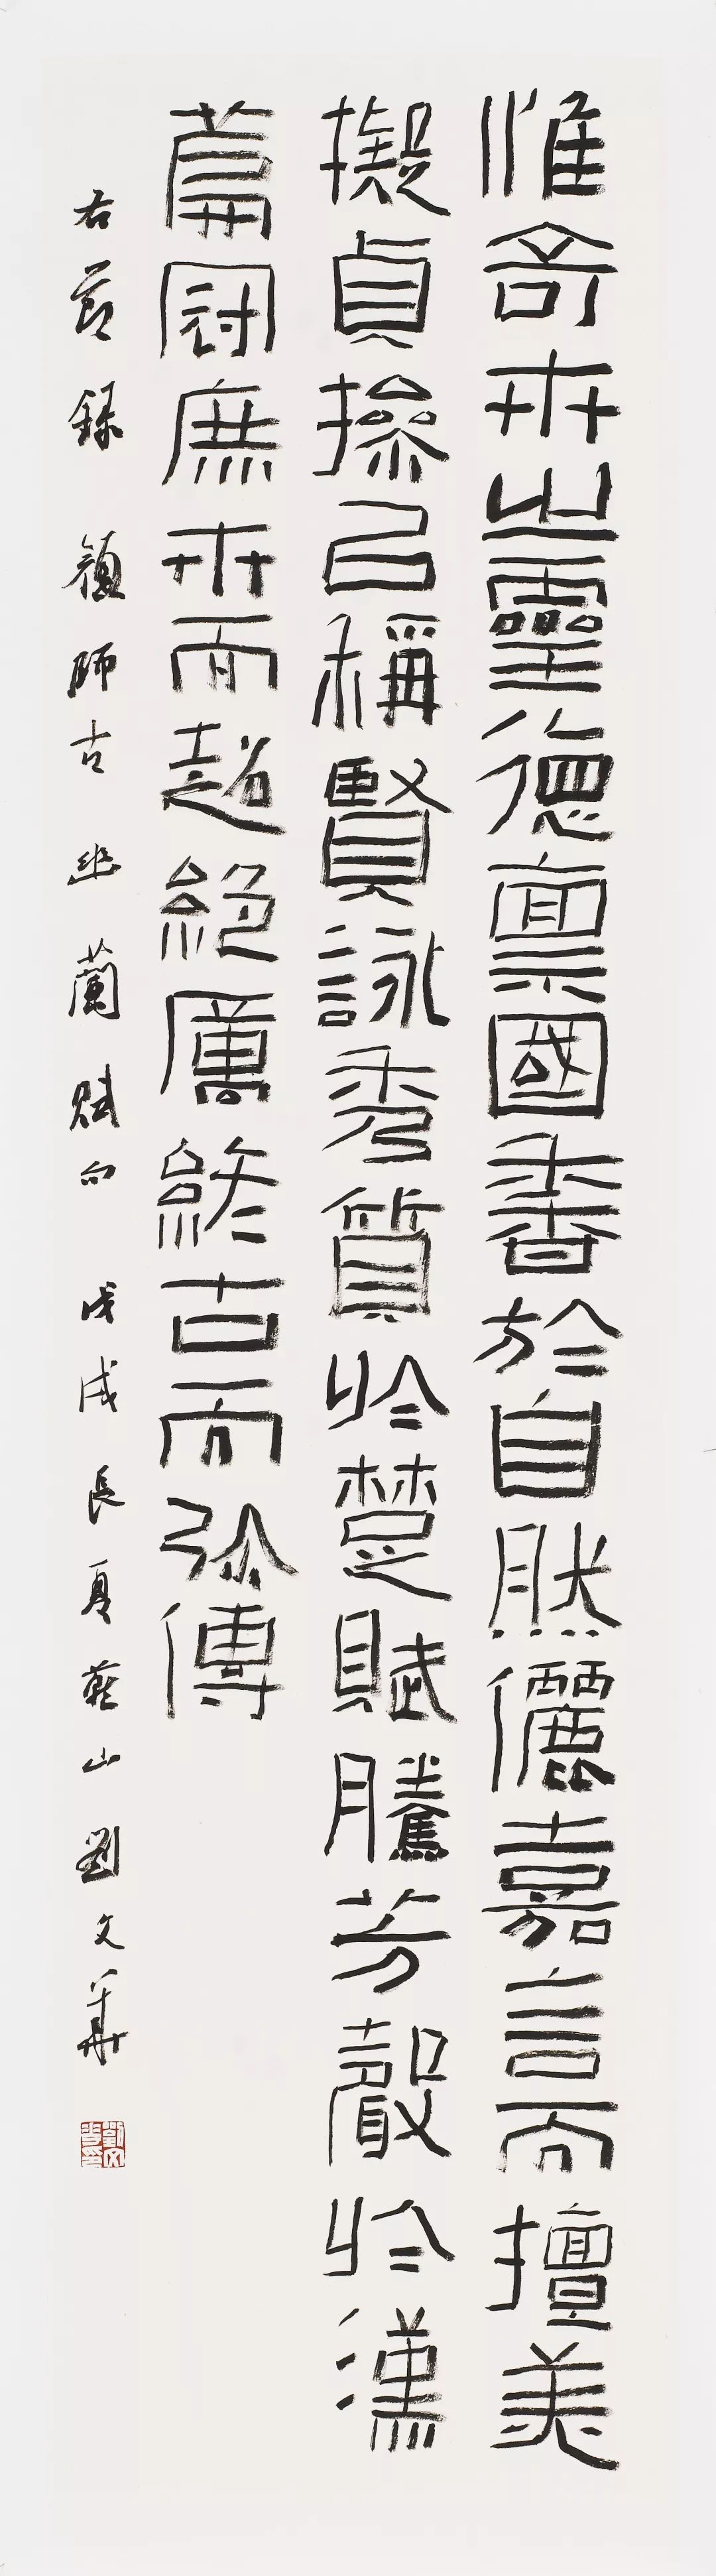 惟奇卉之靈德禀國香於自然儷嘉言而擅美
擬貞操以稱賢詠秀質於楚賦騰芳聲於漢
篇冠庶卉而超絕厲終古而弥傳
右節録顏師古幽蘭賦句戊戌長夏燕山劉文華